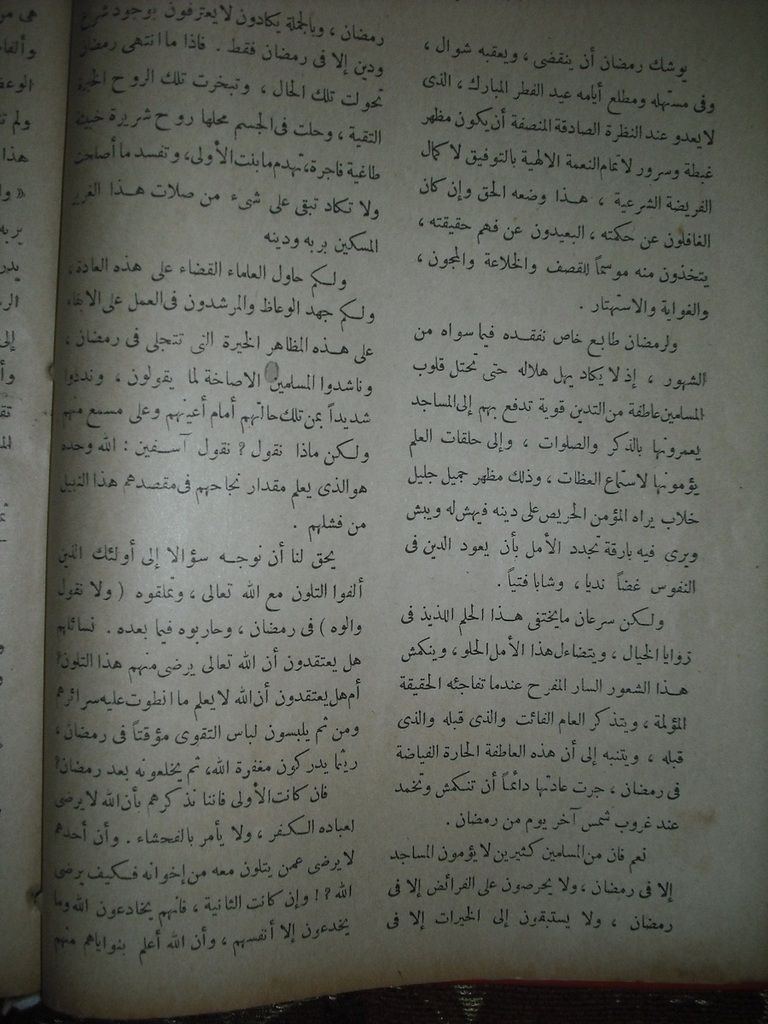 يوشك رمضان أن ينقضى ، ويعقبه شوال ،
وفى مستهله ومطلع أيامه عيد الفطر المبارك ، الذى
لا يعدو عند النظرة الصادقة المنصفة أن يكون مظهر
غبطة وسرور لاتمام النعمة الالهية بالتوفيق لا كمال
الفريضة الشرعية ، هذا وضعه الحق وإن كان
الغافلون عن حكمته ، البعيدون عن فهم حقيقته ،
يتخذون منه موسماً للقصف والخلاعة والمجون ،
والغواية والاستهتار .
ولرمضان طابع خاص نفقده فيما سواه من
الشهور ، إذ لا يكاد يهل هلاله حتى تحتل قلوب
المسلمين عاطفة من التدين قوية تدفع بهم إلى المساجد
يعمرونها بالذكر والصلوات ، وإلى حلقات العلم
يؤمونها لاستماع العظات ، وذلك مظهر جميل جليل
خلاب يراه المؤمن الحريص على دينه فيهش له ويبش
ويرى فيه بارقة تجدد الأمل بأن يعود الدين فى
النفوس غضاً نديا ، وشابا فتياً .
ولكن سرعان مايختفى هذا الحلم اللذيذ فى
زوايا الخيال ، ويتضاءل هذا الأمل الحلو ، وينكمش
هذا الشعور السار المفرح عندما تفاجئه الحقيقة
المؤلمة ، ويتذكر العام الفائت والذى قبله والذى
قبله ، ويتنبه إلى أن هذه العاطفة الحارة الفياضة
فى رمضان ، جرت عادتها دائماً أن تنكمش وتخمد
عند غروب شمس آخر يوم من رمضان .
نعم فان من المسلمين كثيرين لا يؤمون المساجد
إلا فى رمضان ، ولا يحرصون على الفرائض إلا فى
رمضان ، ولا يستبقون إلى الخيرات إلا فى
رمضان ، وبالجملة يكادون لا يعترفون بوجود شرع
ودين إلا فى رمضان فقط . فاذا ما انتهى رمضان
تحولت تلك الحال ، وتبخرت تلك الروح الخيرة
التقية ، وحلت فى الجسم محلها روح شريرة خبيثة
طاغية فاجرة، تهدم مابنت الأولى، وتفسد ما أصلحت
ولا تكاد تبقى على شىء من صلات هذا الغرير
المسكين بربه ودينه
ولكم حاول العلماء القضاء على هذه العادة،
ولكم جهد الوعاظ والمرشدون فى العمل على الابقاء
على هذه المظاهر الخيرة التى تتجلى فى رمضان ،
وناشدوا المسلمين الاصاخة لما يقولون ، ونددوا
شديداً بمن تلك حالتهم أمام أعينهم وعلى مسمع منهم
ولكن ماذا نقول ? نقول آسفين : الله وحده
هو الذى يعلم مقدار نجاحهم فى مقصدهم هذا النبيل
من فشلهم .
يحق لنا أن نوجه سؤالا إلى أولئك الذين
ألفوا التلون مع الله تعالى ، وتملقوه ( ولا نقول
والوه ) فى رمضان ، وحاربوه فيما بعده . نسائلهم
هل يعتقدون أن الله تعالى يرضى منهم هذا التلون?
أم هل يعتقدون أن الله لا يعلم ما انطوت عليه سرائرهم
ومن ثم يلبسون لباس التقوى مؤقتاً فى رمضان ،
ريثما يدركون مغفرة الله، ثم يخلعونه بعد رمضان?
فان كانت الأولى فاننا نذكرهم بأن الله لا يرضى
لعباده الكفر ، ولا يأمر بالفحشاء . وأن أحدهم
لا يرضى عمن يتلون معه من إخوانه فكيف يرضى
الله ?! وإن كانت الثانية ، فانهم يخادعون الله وما
يخدعون إلا أنفسهم ، وأن الله أعلم بنواياهم منهم